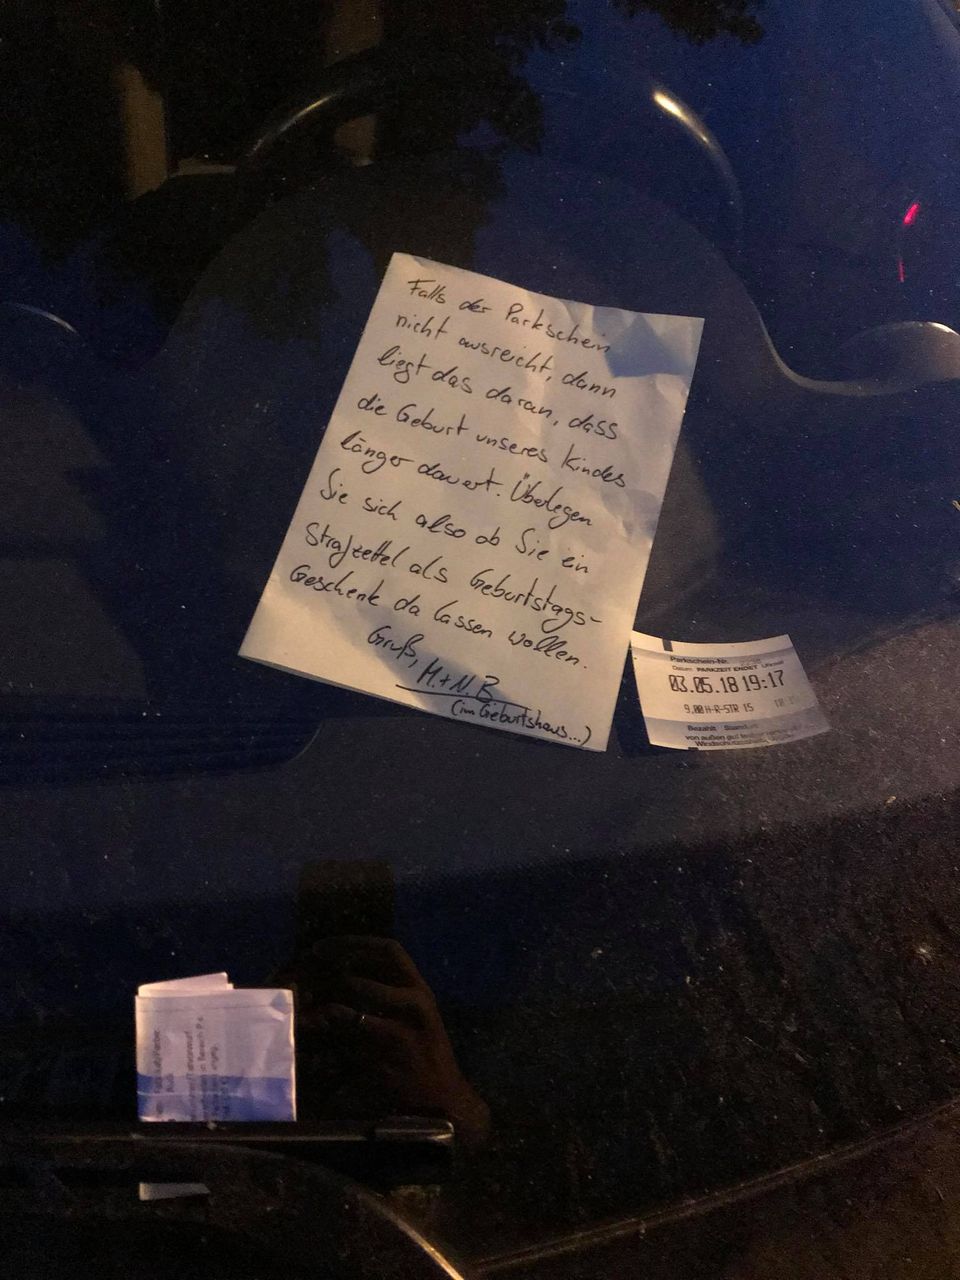 Falls der Parkschein
nicht ausreicht, dann
liegt das daran, dass
die Geburt unseres Kindes
länger dauert. Überlegen
Sie sich also ob Sie ein
Strafzettel als Geburtstags-
Geschenk da lassen wollen.
Gruß,
M.+N.B
(im Geburtshaus...)
Parkschein-Nr.
Datum PARKZEIT ENDET Uhrzeit
03.05.18 19:17
9,00 H-R-STR 15
Bezahlt
von außen gut